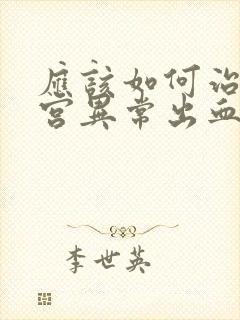 應該如何治
宮異常出血
李世英